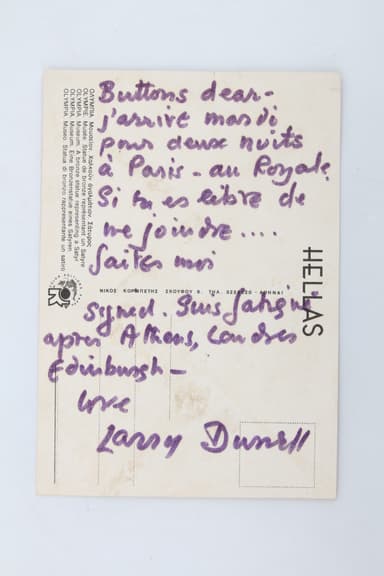 Buttons dear -
j'arrive mardi
pour deux nuits
à Paris - au Royale.
Si tu es libre de
me joindre ....
faites moi
signed. Suis fatigué
après Athens, Londres
Edinburgh -
love
Larry Durrell
HELLAS
ΟΛΥΜΠΙΑ Μουσείον. Χαλκούν άγαλμάτιον Σατύρος
OLYMPIE. Musée. Statue de bronze représentant un Satyre
OLYMPIA Museum. A bronze statue representing a Satyr
OLYMPIA. Museum. Eine Bronzestatue eines Satyren
OLYMPIA. Museo. Statua di bronzo rappresentante un satiro
ΝΙΚΟΣ ΚΟΡΜΠΕΤΗΣ ΣΚΟΥΦΟΥ 8 ΤΗΛ. ΑΘΗΝΑΙ